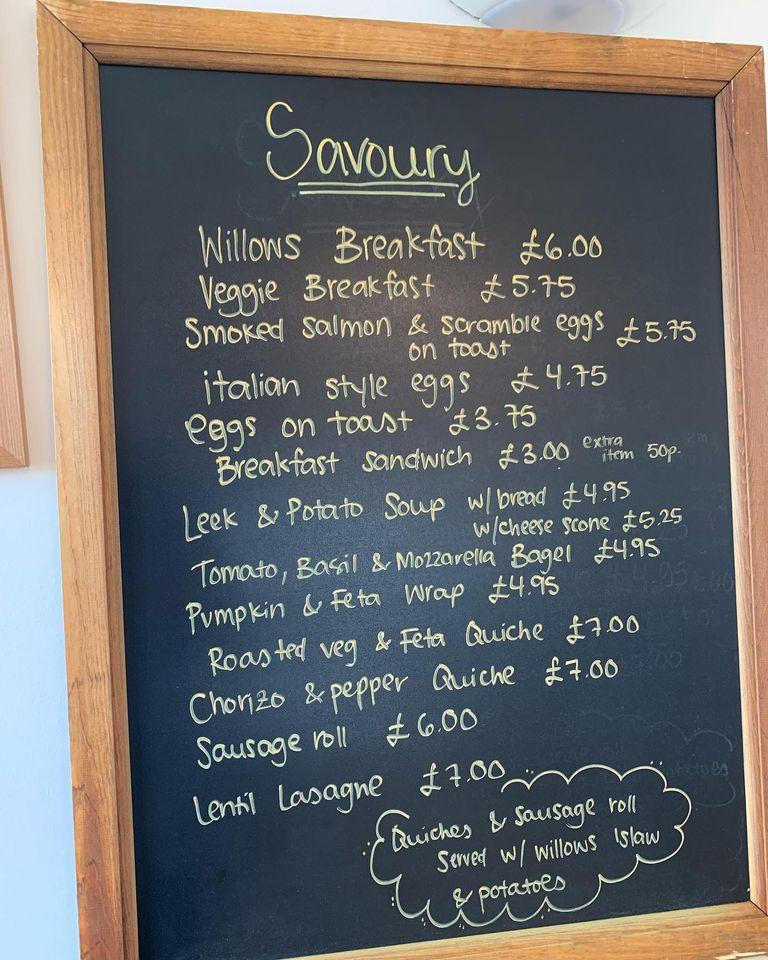 Savoury
Willows Breakfast £6.00
Veggie Breakfast £5.75
Smoked salmon & scramble eggs £5.75
on toast
italian style eggs £4.75
eggs on toast £3.75
Breakfast sandwich £3.00 extra item 50p.
Leek & Potato Soup w/bread £4.95
w/cheese scone £5.25
Tomato, Basil & Mozzarella Bagel £4.95
Pumpkin & Feta Wrap £4.95
Roasted veg & Feta Quiche £7.00
Chorizo & pepper Quiche £7.00
Sausage roll £6.00
Lentil Lasagne £7.00
Quiches & sausage roll
Served w/ willows 'slaw
& potatoes